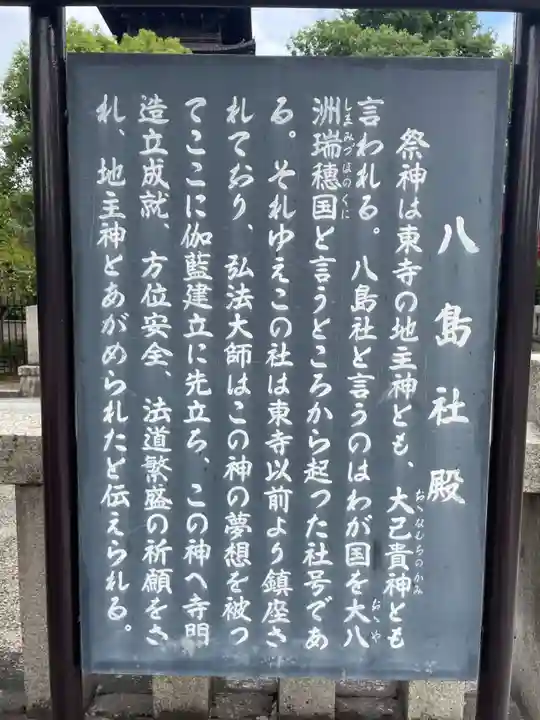 八島社殿
祭神は東寺の地主神とも、大己貴神とも
おゝなむちのかみ
言われる。八島社と言うのはわが国を大八
おゝや
洲瑞穂国と言うところから起った社号であ
しまみづほのくに
る。それゆえこの社は東寺以前より鎮座さ
れており、弘法大師はこの神の夢想を被っ
てここに伽藍建立に先立ち、この神へ寺門
造立成就、方位安全、法道繁盛の祈願をさ
れ、地主神とあがめられたと伝えられる。